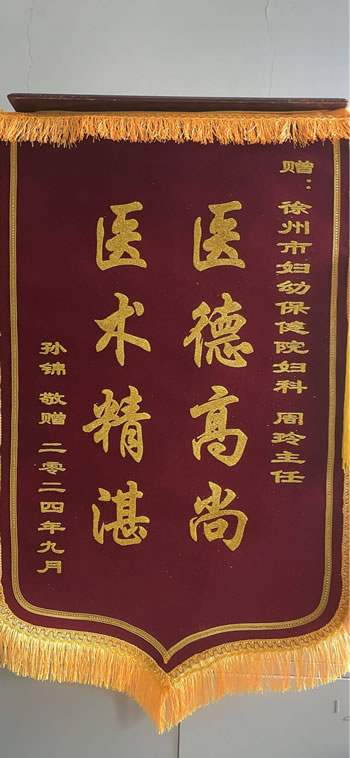 赠：徐州市妇幼保健院妇科 周玲主任
医德高尚
医术精湛
孙锦 敬赠 二零二四年九月